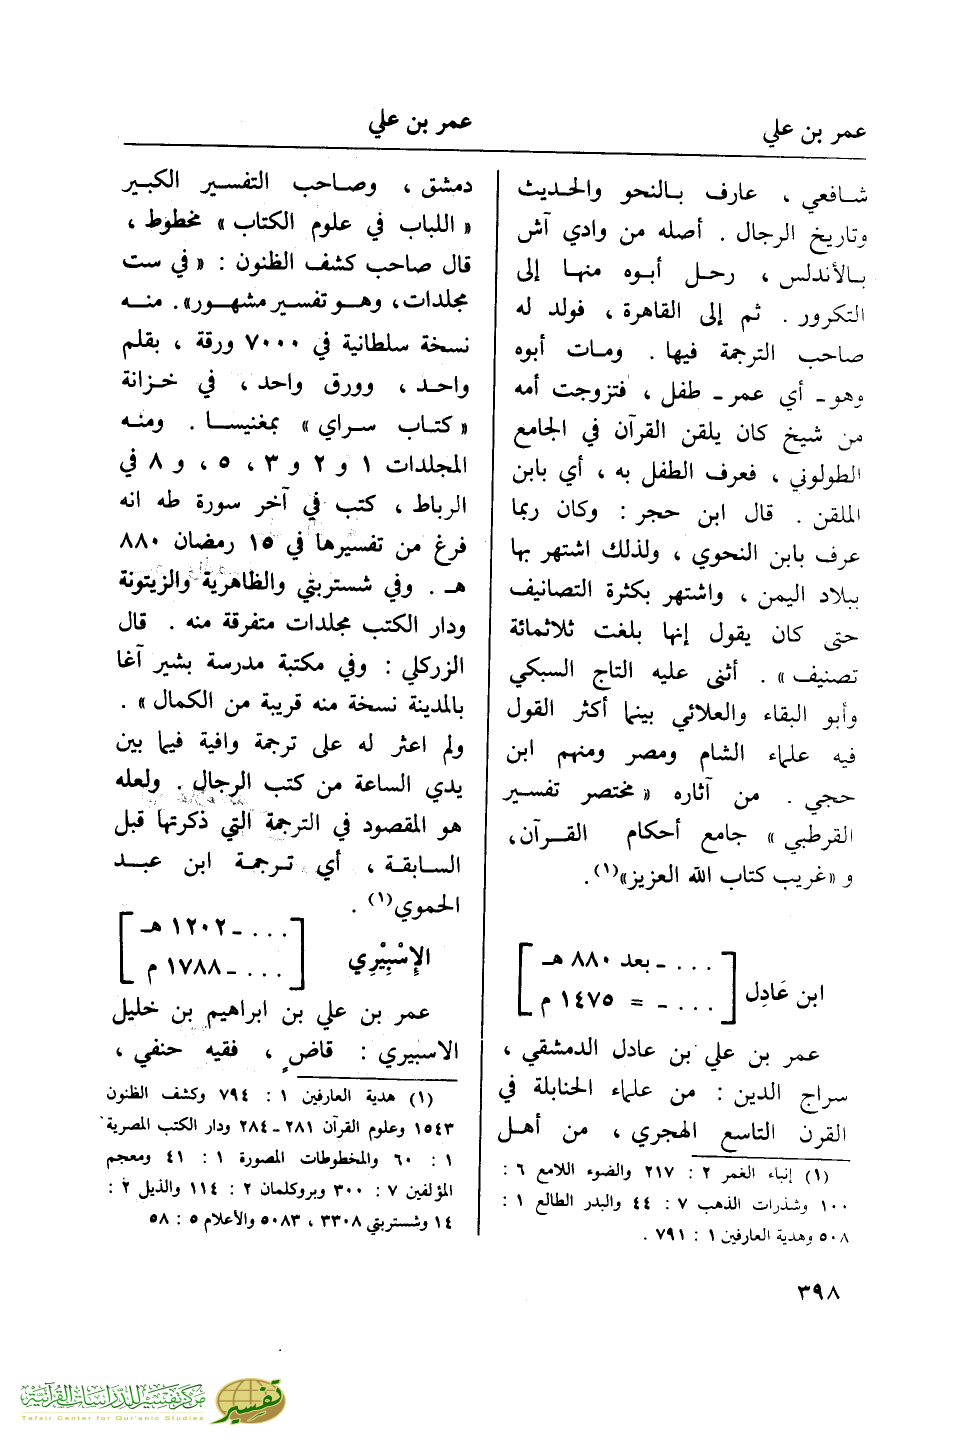 عمر بن علي
عمر بن علي
شافعي ، عارف بالنحو والحديث
وتاريخ الرجال . أصله من وادي آش
بالأندلس ، رحل أبوه منها إلى
التكرور . ثم إلى القاهرة ، فولد له
صاحب الترجمة فيها . ومات أبوه
وهو - أي عمر - طفل ، فتزوجت أمه
من شيخ كان يلقن القرآن في الجامع
الطولوني ، فعرف الطفل به ، أي بابن
الملقن . قال ابن حجر : وكان ربما
عرف بابن النحوي ، ولذلك اشتهر بها
ببلاد اليمن ، واشتهر بكثرة التصانيف
حتى كان يقول إنها بلغت ثلاثمائة
تصنيف » . أثنى عليه التاج السبكي
وأبو البقاء والعلائي بينما أكثر القول
فيه علماء الشام ومصر ومنهم ابن
حجي . من آثاره « مختصر تفسير
القرطبي » جامع أحكام القرآن،
و « غريب كتاب الله العزيز»(١).
ابن عَادِل [ . . . - بعد ٨٨٠ هـ
. . . - = ١٤٧٥ م ]
عمر بن علي بن عادل الدمشقي ،
سراج الدين : من علماء الحنابلة في
القرن التاسع الهجري ، من أهل
(١) إنباء الغمر ٢ : ٢١٧ والضوء اللامع ٦ :
١٠٠ وشذرات الذهب ٧ : ٤٤ والبدر الطالع ١ :
٥٠٨ وهدية العارفين ١ : ٧٩١ .
دمشق ، وصاحب التفسير الكبير
« اللباب في علوم الكتاب » مخطوط ،
قال صاحب كشف الظنون : « في ست
مجلدات، وهو تفسير مشهور». منه
نسخة سلطانية في ٧٠٠٠ ورقة ، بقلم
واحد ، وورق واحد، في خزانة
« كتاب سراي » بمغنيسا . ومنه
المجلدات ١ و ٢ و ٣ ، ٥ ، و ٨ في
الرباط ، كتب في آخر سورة طه انه
فرغ من تفسيرها في ١٥ رمضان ٨٨٠
هـ . وفي شستربتي والظاهرية والزيتونة
ودار الكتب مجلدات متفرقة منه . قال
الزركلي : وفي مكتبة مدرسة بشير آغا
بالمدينة نسخة منه قريبة من الكمال » .
ولم اعثر له على ترجمة وافية فيما بين
يدي الساعة من كتب الرجال . ولعله
هو المقصود في الترجمة التي ذكرتها قبل
السابقة ، أي ترجمة ابن عبد
الحموي(١) .
الإِسْبِيْرِي [ . . . - ١٢٠٢ هـ
. . . - ١٧٨٨ م ]
عمر بن علي بن ابراهيم بن خليل
الاسبيري : قاضٍ ، فقيه حنفي ،
(١) هدية العارفين ١ : ٧٩٤ وكشف الظنون
١٥٤٣ وعلوم القرآن ٢٨١ - ٢٨٤ ودار الكتب المصرية
١ : ٦٠ والمخطوطات المصورة ١ : ٤١ ومعجم
المؤلفين ٧ : ٣٠٠ وبروكلمان ٢ : ١١٤ والذيل ٢ :
١٤ وشستربتي ٣٣٠٨ ، ٥٠٨٣ والأعلام ٥ : ٥٨
٣٩٨
مركز تفسير للدراسات القرآنية
Tafsir Center for Qur'anic Studies
تفسير